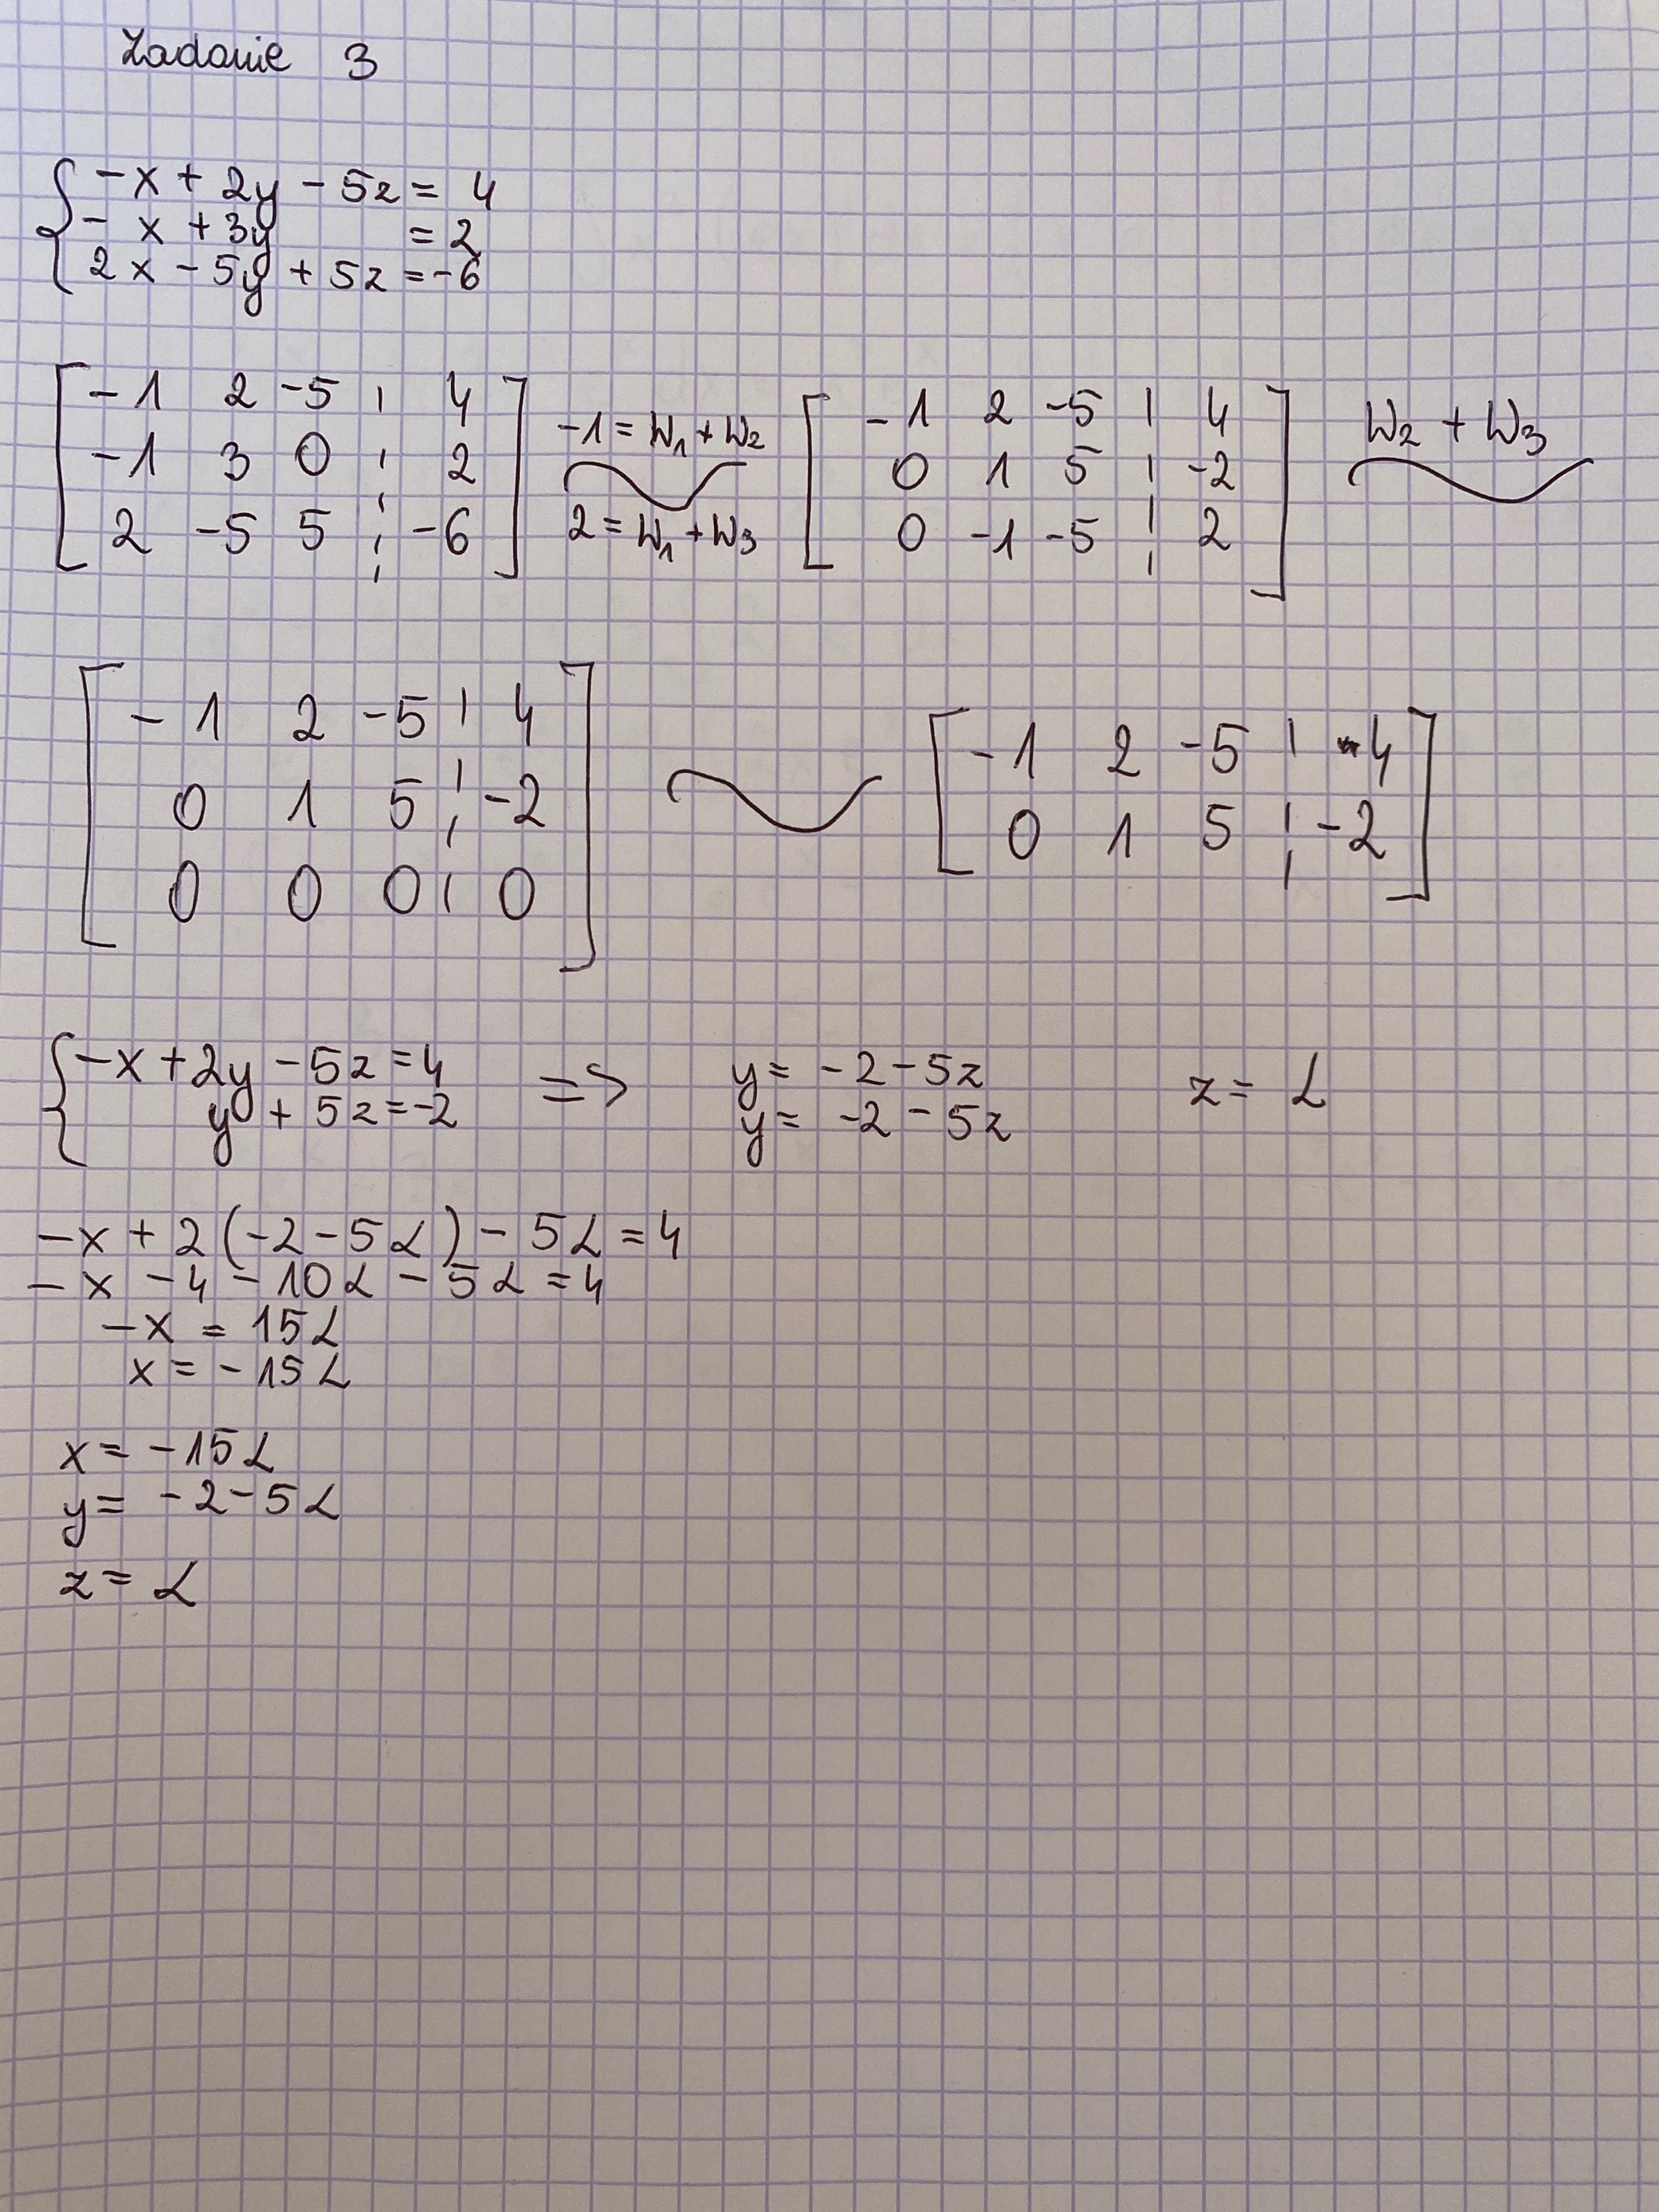 Zadanie 3
-x + 2y - 5z = 4
- x + 3y = 2
2x - 5y + 5z = -6
-1 2 -5 | 4
-1 3 0 | 2
2 -5 5 | -6
-1 = W₁ + W₂
2 = W₁ + W₃
-1 2 -5 | 4
0 1 5 | -2
0 -1 -5 | 2
W₂ + W₃
-1 2 -5 | 4
0 1 5 | -2
0 0 0 | 0
-1 2 -5 | 4
0 1 5 | -2
-x + 2y - 5z = 4 => y = -2 - 5z z = α
y + 5z = -2 y = -2 - 5z
-x + 2(-2 - 5α) - 5α = 4
-x - 4 - 10α - 5α = 4
-x = 15α
x = -15α
x = -15α
y = -2 - 5α
z = α